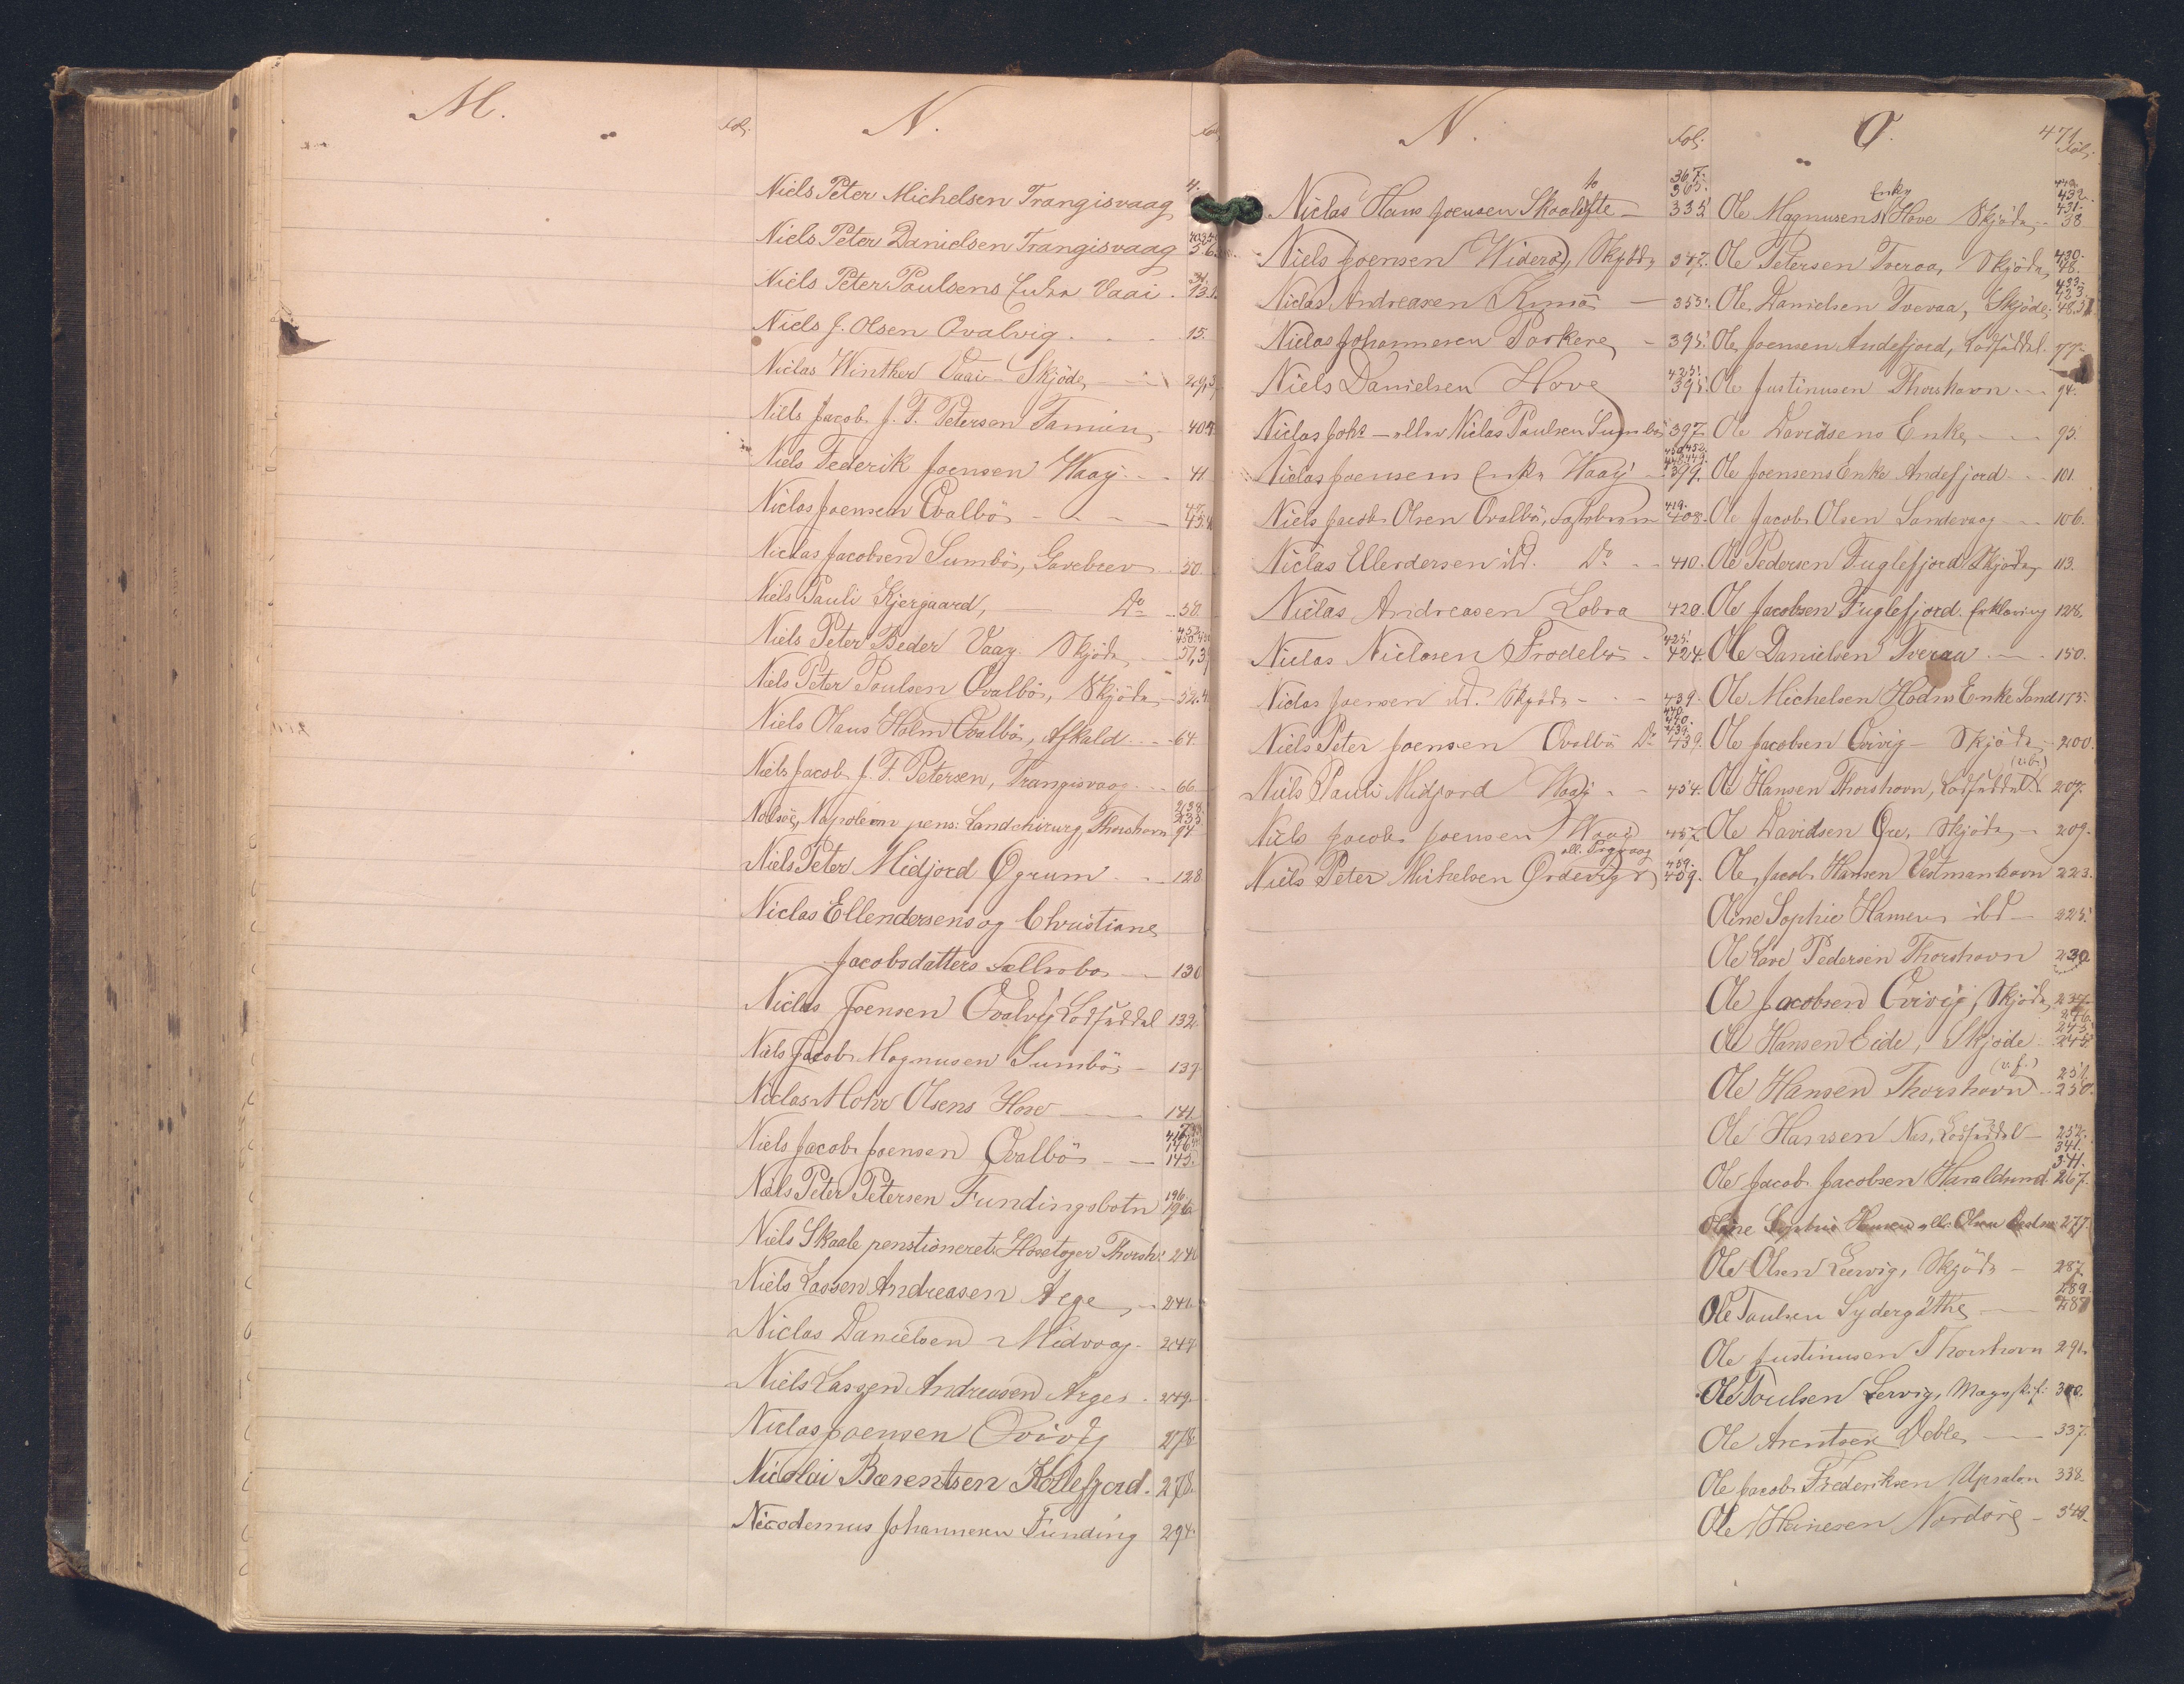 M.
Fol.
N.
Fol.
Niels Peter Michelsen Trangisvaag 4.
Niels Peter Danielsen Trangisvaag 5.6.
Niels Peter Paulsens Enke Vaai . 13.
Niels J. Olsen Qvalvig . . . 15.
Niclas Winther Vaai Skjöde, - 29,
Niels Jacob J. F. Petersen Famien, - 40
Niels Federik Joensen Waag . - . 41
Niclas Joensen Qvalbö - - - 45.
Niclas Jacobsen Sumbö, Gavebrev . 50.
Niels Pauli Kjergaard, — Do - 50.
Niels Peter Beder Vaag Skjöde - 51,
Niels Peter Poulsen Qvalbö, Skjöde - 52.
Niels Olaus Holm Qvalbö, Afkald . - - 64.
Niels Jacob J. F. Petersen, Trangisvaag . - . 66.
238.
235.
Nolsöe, Napoleon pens: Landchirurg, Thorshavn 94
Niels Peter Midjord Øgrum - . - 128
Niclas Ellendersens og Christiane
Jacobsdatters Fællesbo — 130
Niclas Joensen Qvalvig Lodsuddel 132
Niels Jacob Magnusen Sumbö - 137
Niclas Mohr Olsens Hove — 141
Niels Jacob Joensen Qvalbö - — 145.
196.
Niels Peter Petersen Fundingsbotn 196
Niels Skaale pensioneret Thorsh. 240
Niels Lassen Andreasen Arge, - 241.
Niclas Danielsen Midvaag - 248
Niels Lassen Andreasen Arge . 249.
Niclas Joensen Qvivig 278
Nicolai Bærentsen Kollefjord . 278.
Nicodemus Johannesen Funding 294.
N.
Fol.
367.
365.
Niclas Hans Joensen Skaaletofte — 335.
Niels Joensen Widerö, Skjöde 347.
Niclas Andreasen Kunö — 353.
Niclas Johannesen Porkere - 395.
425.
Niels Danielsen Hove 395.
Niclas Johs — eller Niclas Paulsen Sumbö 397.
Niclas Joensens Enke Waag - 399.
419.
Niels Jacob Olsen Qvalbö, 408.
Niclas Ellendersen ibd. Do - - 410.
Niclas Andreasen Lobra 420.
425.
Niclas Niclasen Frodebö . 424.
Niclas Joensen ibd. Skjöde - - - 439.
440.
440.
439.
Niels Peter Joensen Qvalbö Do 439.
Niels Pauli Midjord Waag - - 454.
Niels Jacob Joensen Waag 457.
459.
Niels Peter Michelsen Ördevig 459.
O.
471.
Fol.
432.
431.
Ole Magnusens Enke Hove Skjöde - 38
430.
Ole Petersen Tveraa, Skjöde 48.
433.
423.
Ole Danielsen Tveraa, Skjöde 48.51
Ole Joensen Andefjord, Lodsuddel. 77.
Ole Justinusen Thorshavn . - . 94.
Ole Davidsens Enke, - - - 95.
Ole Joensens Enke Andefjord . - . 101.
Ole Jacob Olsen Sandevaag - - - 106.
Ole Pedersen Fuglefjord Skjöde, 113.
Ole Jacobsen Fuglefjord. Erklæring 128.
Ole Danielsen Tveraa . — . 150.
Ole Michelsen Hodns Enke Sand 175.
Ole Jacobsen Qvivig — Skjöde - 200.
Ole Hansen Thorshavn, Lodsuddel 207.
Ole Davidsen Öre, Skjöde, - 209.
Ole Jacob Hansen Vestmanhavn 223.
Oline Sophie Hansen ibd — 225.
Ole Pedersen Thorshavn 230
Ole Jacobsen Qvivig, Skjöde, 237.
246.
245.
Ole Hansen Eide, Skjöde 245.
(v.f.) 251.
Ole Hansen Thorshavn . 250.
Ole Hansen Næs, Lodsuddel — 252.
341.
341.
Ole Jacob Jacobsen Haraldsund. 267.
Oline Sophie Hansen 277.
Ole Olsen Leervig, Skjöde - 287.
289.
Ole Paulsen Sydergöthe — 287
Ole Justinusen Thorshavn 291.
Ole Poulsen Lervig, 300.
Ole Arentsen Deble, — 337.
Ole Jacob Frederiksen Upsalon 338.
Ole Heinesen Nordöre - 340.